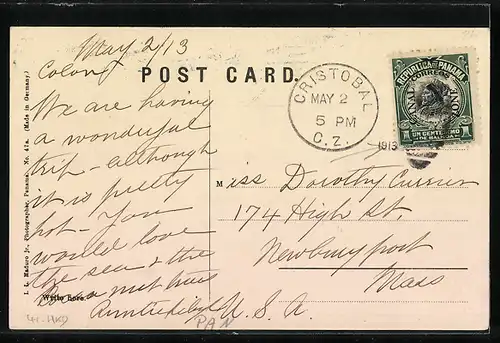 May 2/13
Colon
POST CARD.
We are having
a wonderful
trip - although
it is pretty
hot - You
would love
the sea & the
Write here.
CRISTOBAL
MAY 2
5 PM
C. Z.
1913
REPUBLICA DE PANAMA
CORREOS
CANAL ZONE
1 UN CENTESIMO 1
DE BALBOA
Miss Dorothy Currier
174 High St.
Newburyport
Mass
U. S. A.
PAN
I. L. Maduro Jr., Photographer, Panama. No. 41a. (Made in Germany)